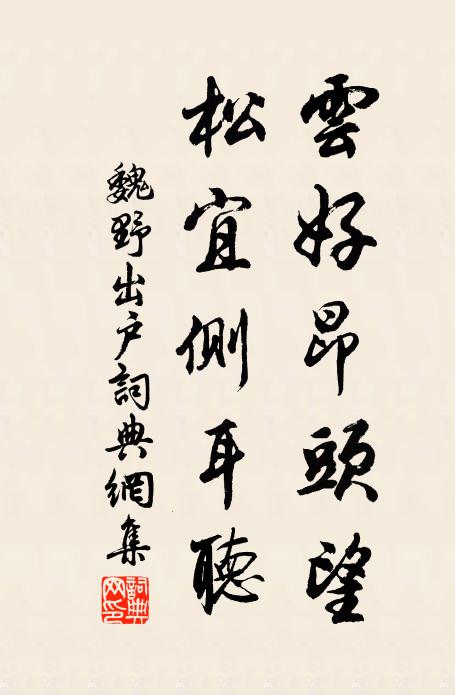 雲好昂頭望
松宜側耳聽
魏野出户詞典網集
詞典网印